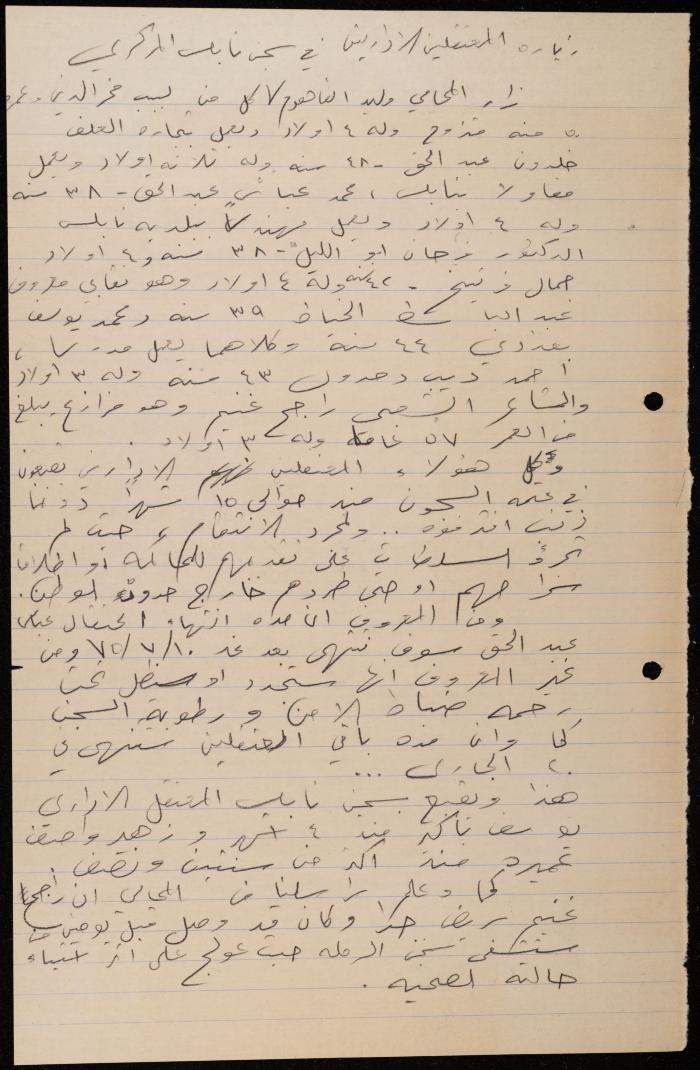 زيارة المعتقلين الاداريين في سجن نابلس المركزي
زار المحامي وليد الفاهوم كل من لبيب فخر الدين وعمره
٥٠ سنه متزوج وله ٤ اولاد ويعمل بتجارة العلف
خلدون عبد الحق - ٤٨ سنه وله ثلاثة اولاد ويعمل
مقاولا بنابلس ، محمد عباس عبد الحق - ٣٨ سنه
وله ٤ اولاد ويعمل مهندسا ببلدية نابلس
الدكتور فرحان ابو الليل - ٣٨ سنه و ٤ اولاد
جمال فريتخ - ٤٢ سنه وله ٤ اولاد وهو نقابي معروف
عبد الباسط الخياط ٣٩ سنه ومحمد يوسف
٤٤ سنة وكلاهما يعمل مدرسا ،
احمد ديب دحدول ٤٣ سنه وله ٣ اولاد
والشاعر الشعبي راجح غنيم وهو مزارع يبلغ
من العمر ٥٧ عاما وله ٣ اولاد .
وكل هؤلاء المعتقلين الاداريين يقبعون
في عتمة السجون منذ حوالي ١٥ شهرا دونما
ذنب اقترفوه .. ولمجرد الانتقام ، حيث لم
تجرؤ السلطات على تقديمهم للمحاكمة أو اطلاق
سراحهم او حتى طردهم خارج حدود الوطن .
ومن المعروف ان مدة انتهاء اعتقال عباس
عبد الحق سوف تنتهي بعد غد ٧٥/٧/١٠ ومن
غير المعروف انها ستجدد او سيظل تحت
رحمة ضباط الامن و رطوبة السجن
كما وان مدة باقي المعتقلين ستنتهي في
٢٠ الجاري ...
هذا ويقبع بسجن نابلس المعتقل الاداري
منذ ٤ اشهر و زهير واصف
منذ اكثر من سنتين ونصف .
كما وعلم مراسلنا من المحامي ان راجح
غنيم مريض جدا وكان قد وصل قبل يومين من
مستشفى سجن الرمله حيث عولج على اثر
حالته الصحيه .